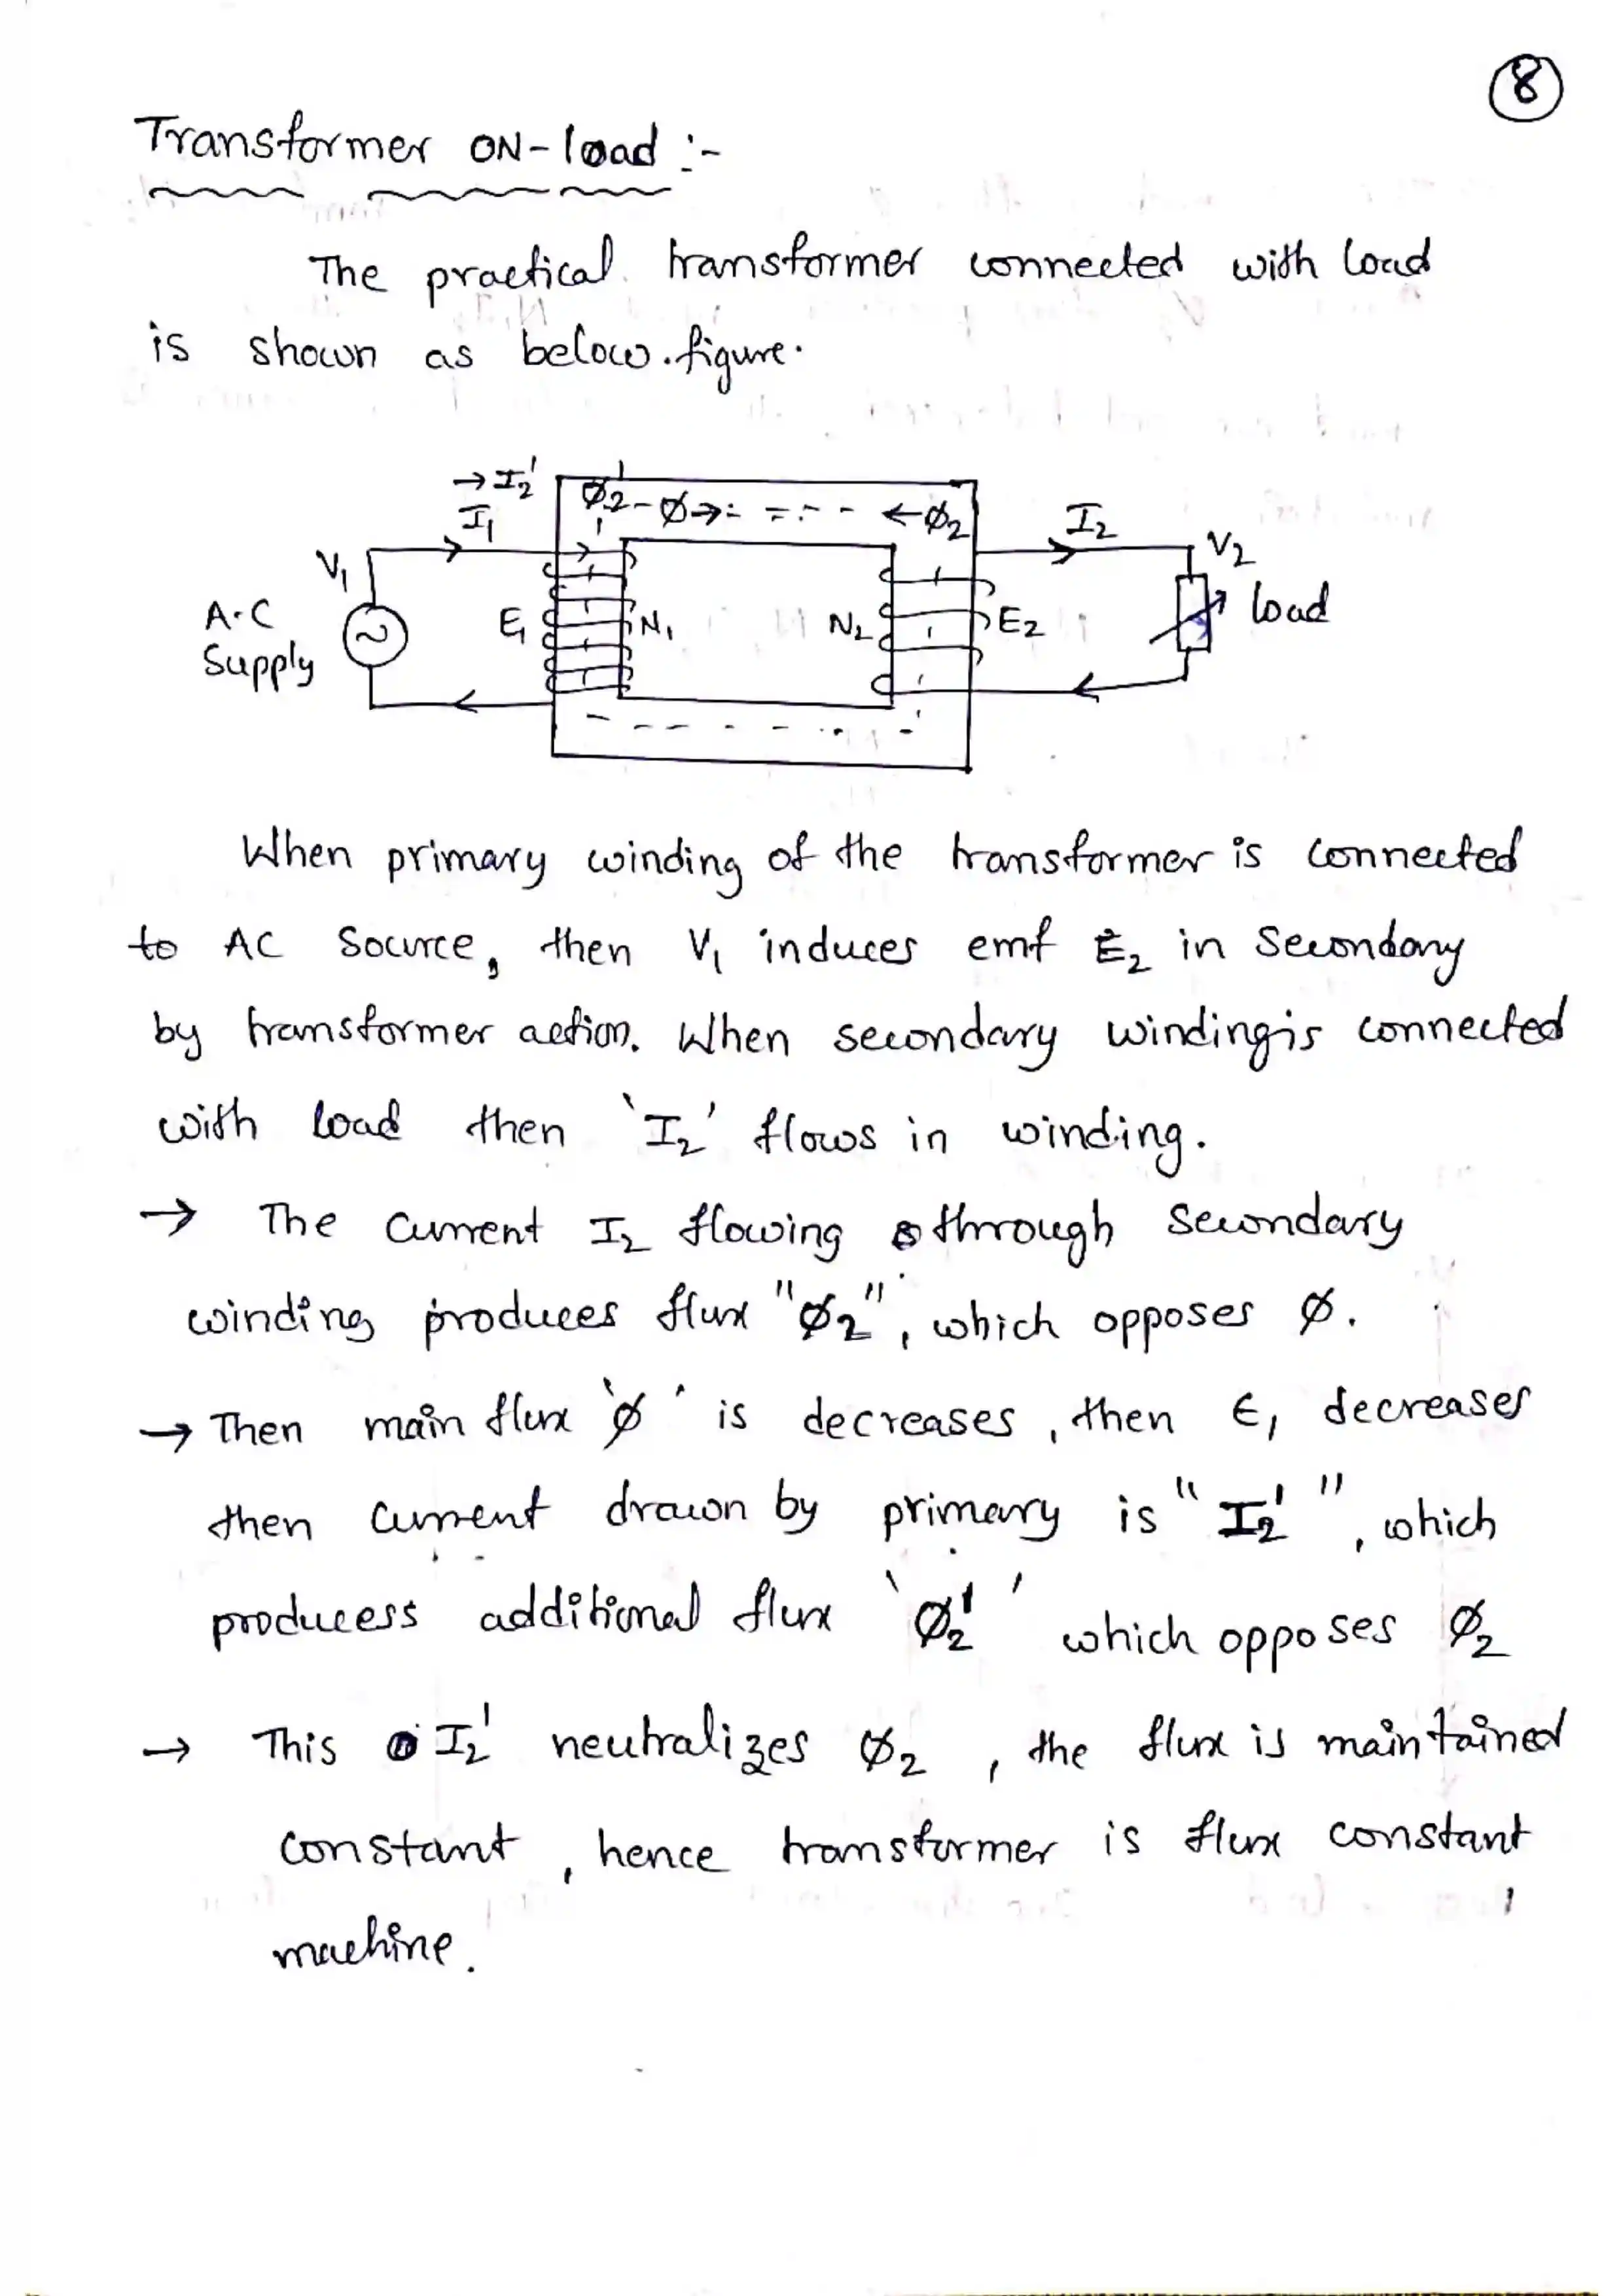 8
Transformer ON-load :-
The practical transformer connected with load
is shown as below.figure.
→ I₂'
I₁
Φ₂' - Φ→ ← Φ₂
I₂
V₁
V₂
A.C
Supply
E₁
N₁
N₂
E₂
load
When primary winding of the transformer is connected
to AC Source, then V₁ induces emf E₂ in Secondary
by transformer action. When secondary winding is connected
with load then 'I₂' flows in winding.
→ The Current I₂ flowing through Secondary
winding produces flux "Φ₂", which opposes Φ.
→ Then main flux 'Φ' is decreases, then E₁ decreases
then Current drawn by primary is "I₂'", which
producess additional flux 'Φ₂'' which opposes Φ₂
→ This I₂' neutralizes Φ₂, the flux is maintained
Constant, hence transformer is flux constant
machine.